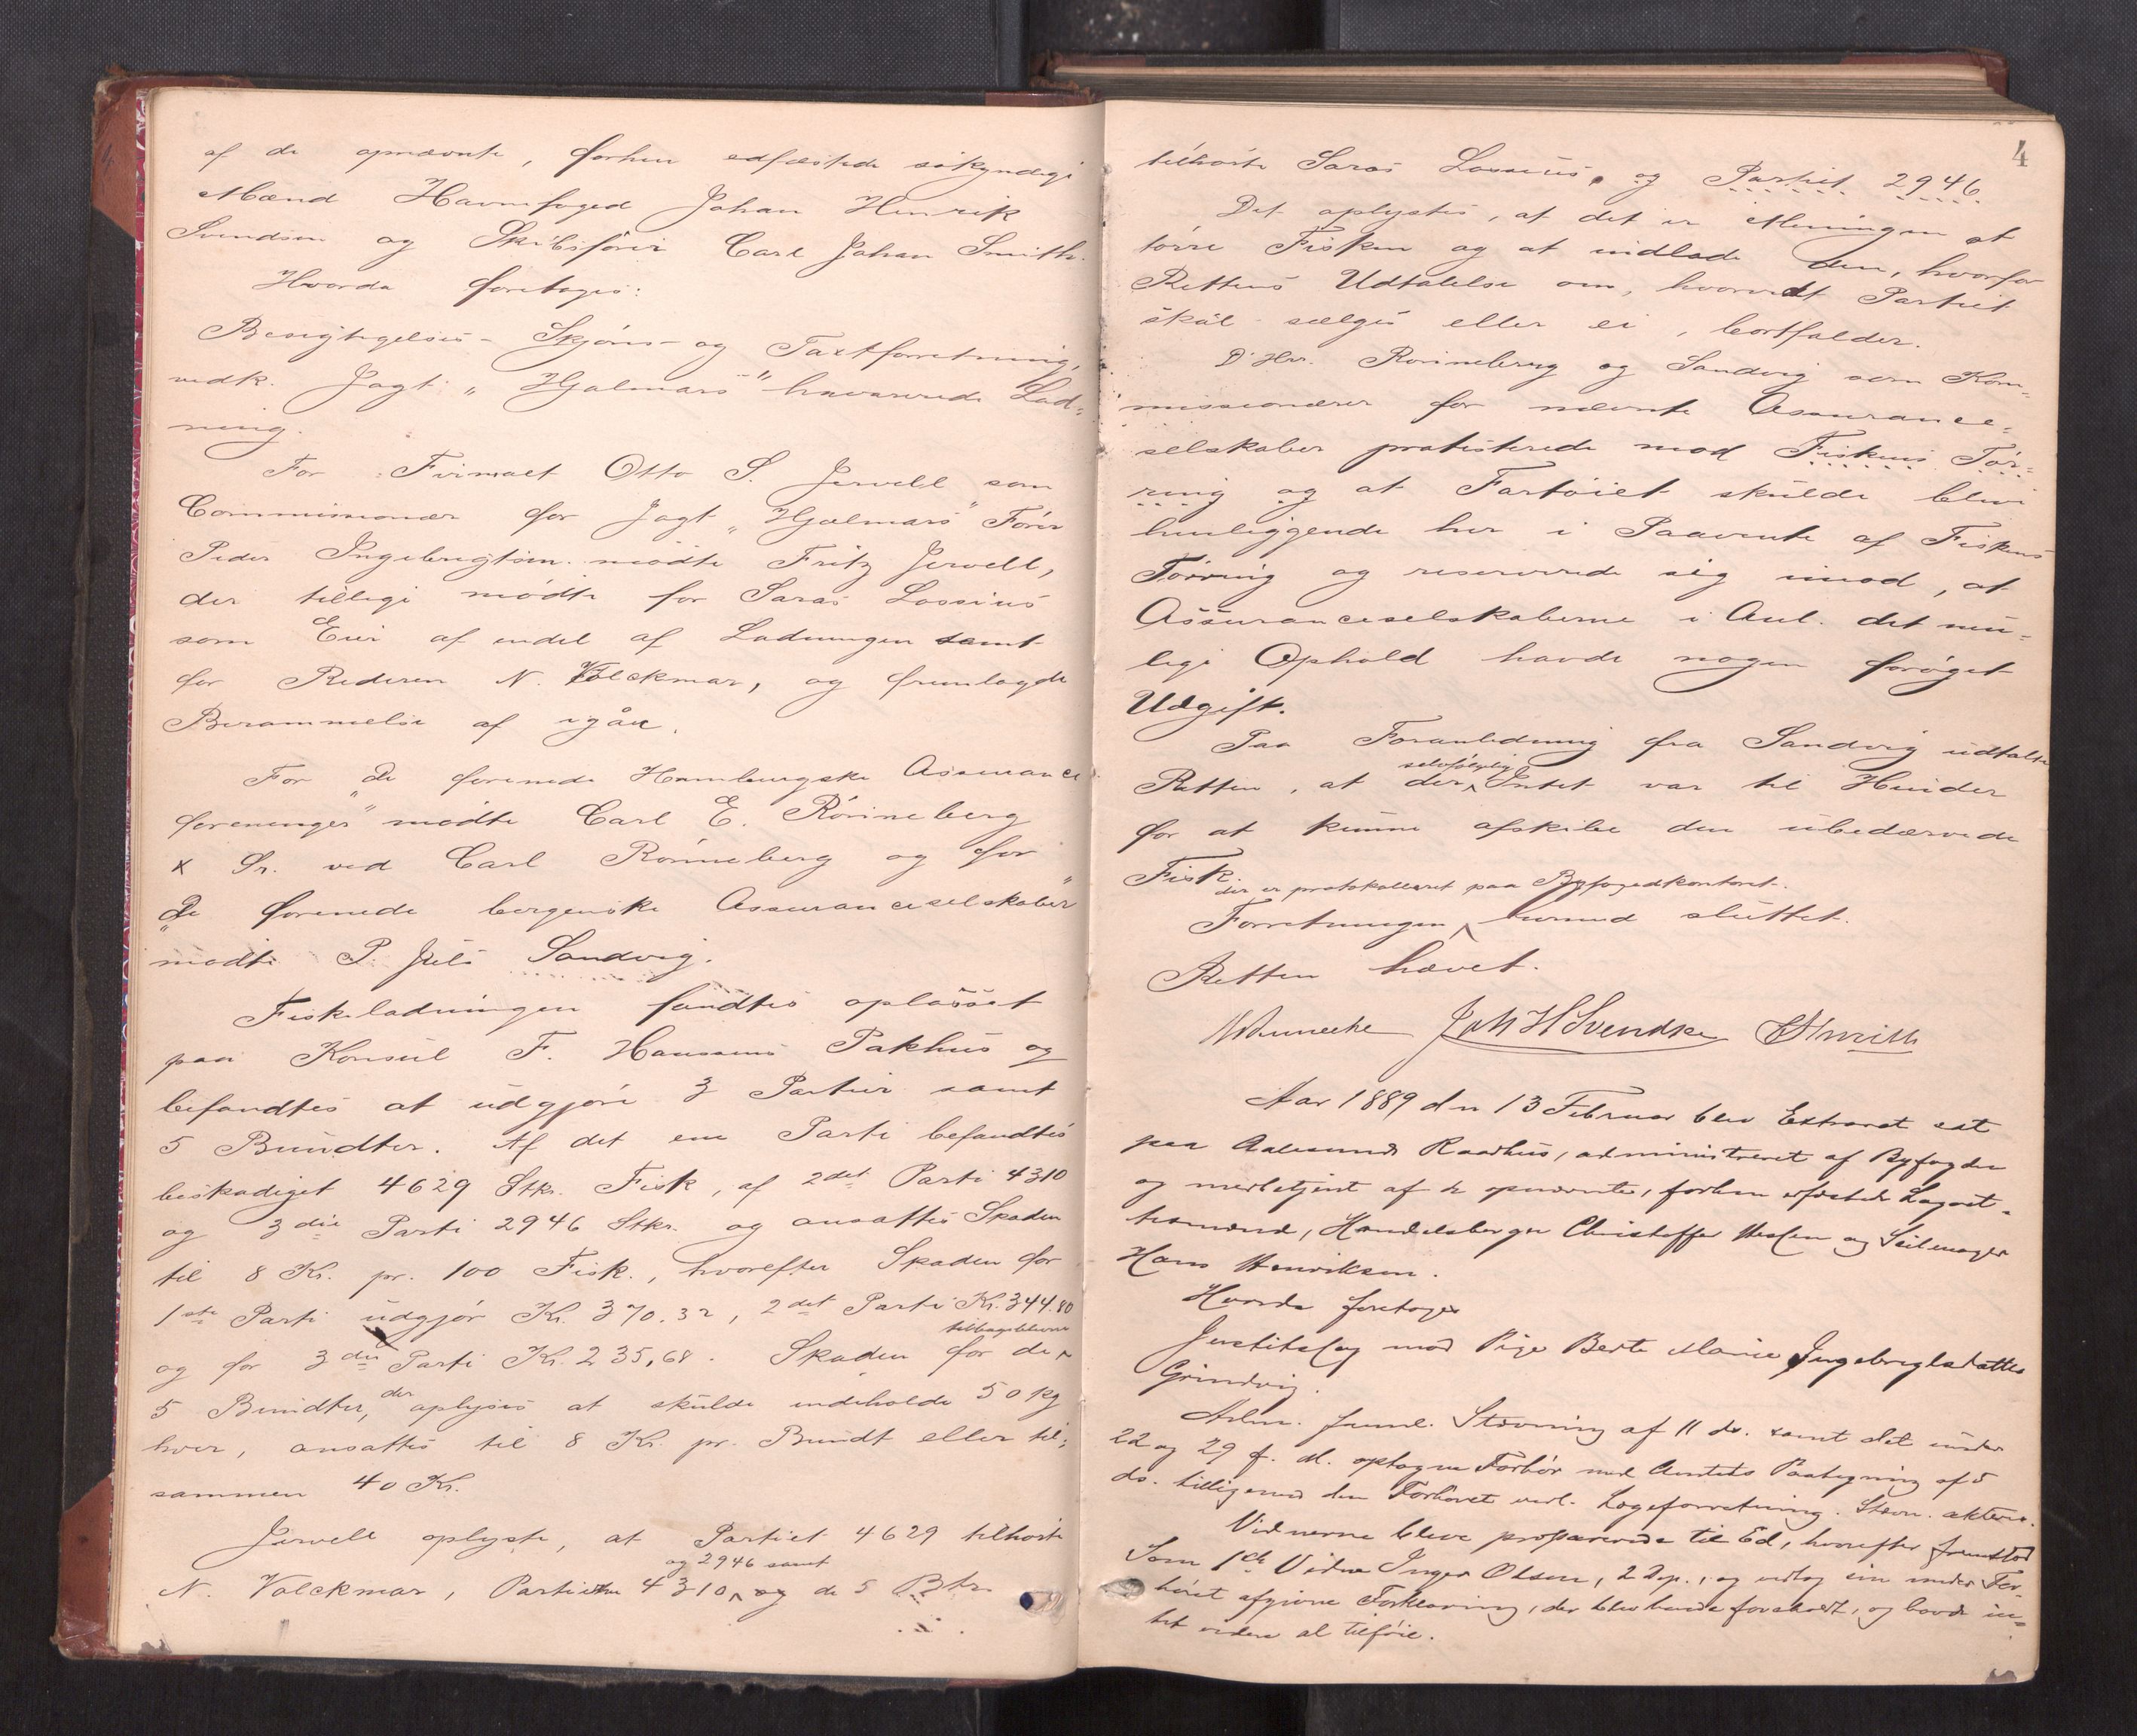 af de opnævnte, forhen edfæstede søkyndige
Mænd Havnefoged Johan Henrik
Svendsen og Skibsfører Carl Johan Smith.
Hvorda foretoges:
Besigtigelses- Skjøns- og Taxtforretning,
vedk. Jagt „Hjalmars" havarerede Lad-
ning.
For Firmaet Otto S. Jervell som
Commissionær for Jagt „Hjalmars" Fører
Peder Ingebrigtsen mødte Fritz Jervell,
der tillige mødte for Saras Lossius
som Eier af endel af Ladningen samt
for Rederen N. Volckmar, og fremlagde
Berammelse af igår.
For „De forenede Hamburgske Assurance
foreninger" mødte Carl E. Rønneberg
x Sr. ved Carl Rønneberg og for
„De forenede bergenske Assuranceselskaber"
mødte P. Juls Sandvig.
Fiskeladningen fandtes oplosset
paa Konsul F. Hansens Pakhus og
befandtes at udgjøre 3 Partier samt
5 Bundter. Af det ene Parti befandtes
beskadiget 4629 Stkr. Fisk, af 2det Parti 4310
og 3die Parti 2946 Stkr. og ansattes Skaden
til 8 Kr. pr. 100 Fisk., hvorefter Skaden for
1ste Parti udgjør Kr. 370.32, 2det Parti Kr. 344.80
og for 3die Parti Kr. 235,68. Skaden for de tilbageblevne
5 Bundter, der oplyses at skulde indeholde 50 kg
hver, ansattes til 8 Kr. pr. Bundt eller til-
sammen 40 Kr.
Jervell oplyste, at Partiet 4629 tilhørte
N. Volckmar, Partierne 4310 og 2946 samt og de 5 Btr.
4
tilhørte Saras Lossius, og Partiet 2946.
Det oplystes, at det er Meningen at
tørre Fisken og at indlade den, hvorfor
Rettens Udtalelse om, hvorvidt Partiet
skal sælges eller ei, bortfalder.
D'Hrr. Rønneberg og Sandvig som Kom-
missionærer for nævnte Assurance-
selskaber protesterede mod Fiskens Tør-
ring og at Fartøiet skulde blive
henliggende her i Paavente af Fiskens
Tørring og reserverede sig imod, at
Assuranceselskaberne i Anl. det mu-
lige Ophold havde nogen forøget
Udgift.
Paa Foranledning fra Sandvig udtalte
Retten, at der selvfølgelig Intet var til Hinder
for at kunne afskibe den ubedærvede
Fisk.
Forretningen der er protokolleret paa Byfogedkontoret. hermed sluttet.
Retten hævet.
Joh H Svendsen CJSmith
Aar 1889 den 13 Februar blev Extraret sat
paa Aalesunds Raadhus, administreret af Byfogden
og medbetjent af de opnævnte, forhen edfæstede Lagret-
tesmænd, Handelsborger Christoffer og Seilmager
Hans Henriksen.
Hvorda foretoges
Justitssag mod Pige Berte Marie Ingebrigtsdatter
Grindvig.
Aktor. freml. Stævning af 11 ds. samt det under
22 og 29 f. M. optagne Forhør med Amtets Paategning af 5
ds. tilligemed den Forhøret vedl. Lægeforretning. Stævn. akteres.
Vidnerne bleve præparerede til Ed, hvorefter fremstod
Som 1ste Vidne Inger Olsen, 2 Dep., og vedtog sin under For-
høret afgivne Forklaring, der blev hende foreholdt, og havde in-
tet videre at tilføie.